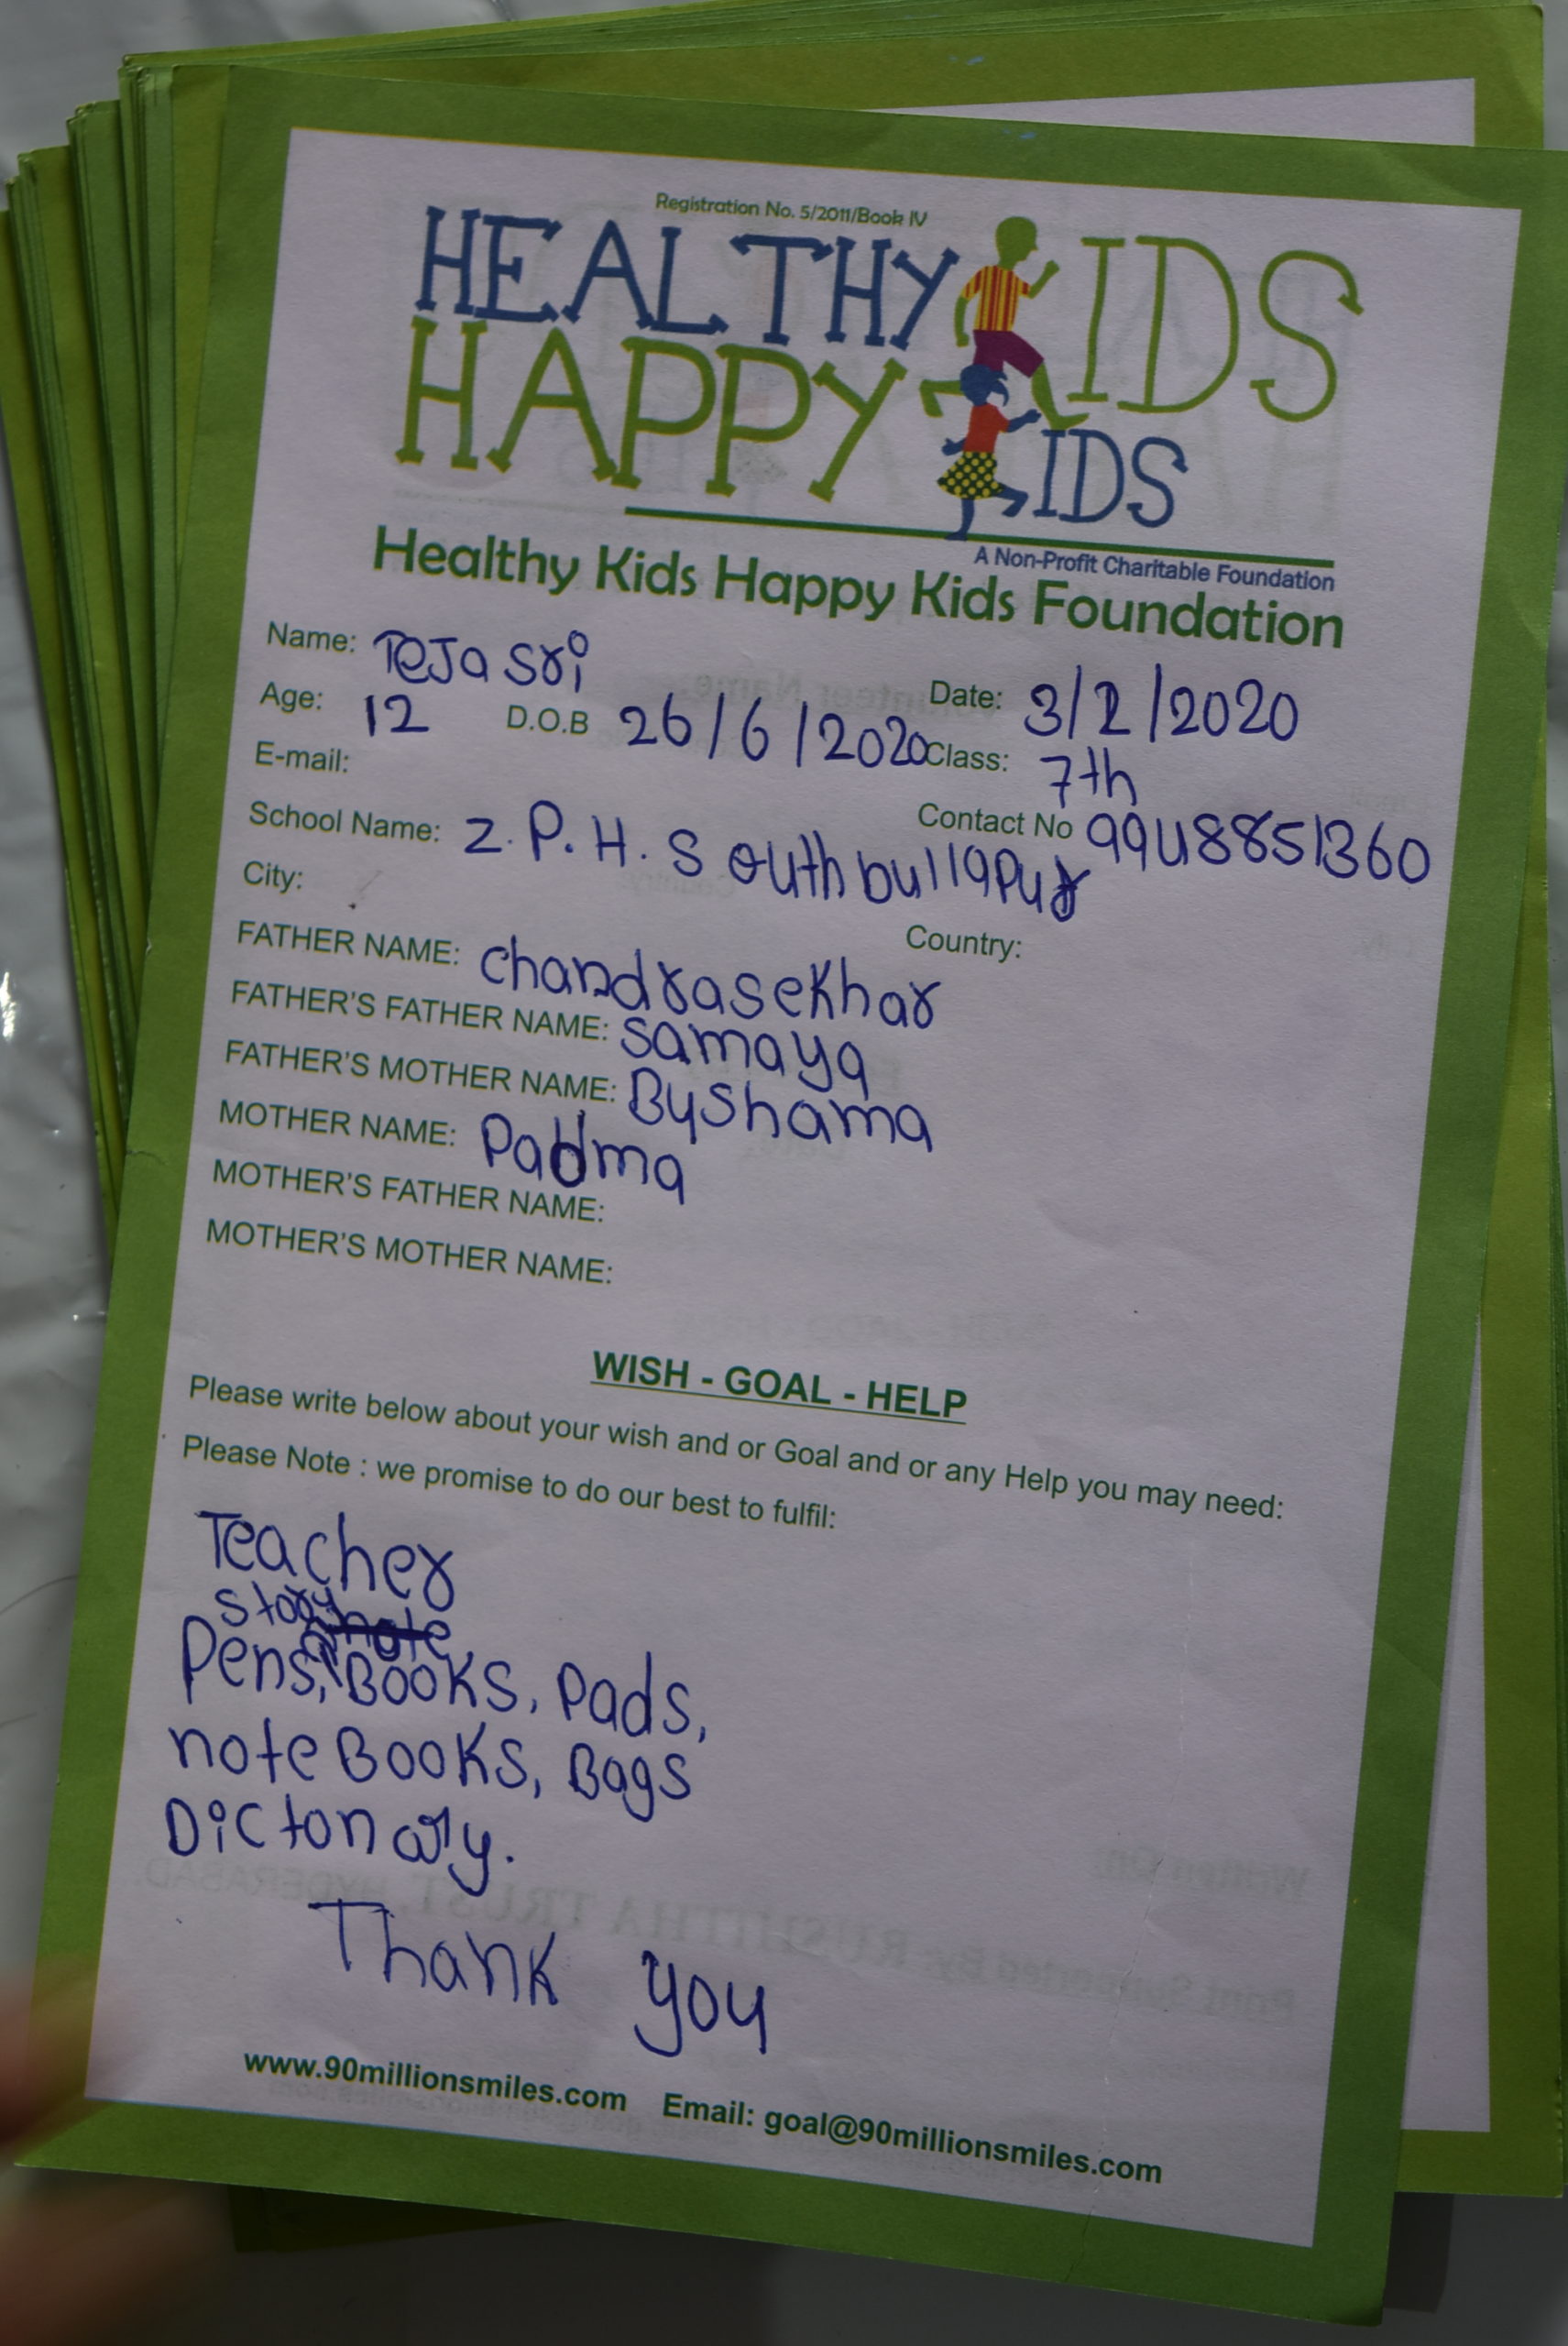 Registration No. 5/2011/Book IV
HEALTHY KIDS
HAPPY KIDS
A Non-Profit Charitable Foundation
Healthy Kids Happy Kids Foundation
Name: TeJa sri
Date: 3/2/2020
Age: 12 D.O.B 26/6/2020 Class: 7th
E-mail:
Contact No 9948851360
School Name: Z. P. H. S outhbullapur
City:
Country:
FATHER NAME: chandrasekhar
FATHER'S FATHER NAME: samaya
FATHER'S MOTHER NAME: Byshama
MOTHER NAME: Padma
MOTHER'S FATHER NAME:
MOTHER'S MOTHER NAME:
WISH - GOAL - HELP
Please write below about your wish and or Goal and or any Help you may need:
Please Note : we promise to do our best to fulfil:
Teacher
story note
Pens, Books, Pads,
note Books, Bags
Dictonary.
Thank you
www.90millionsmiles.com Email: goal@90millionsmiles.com